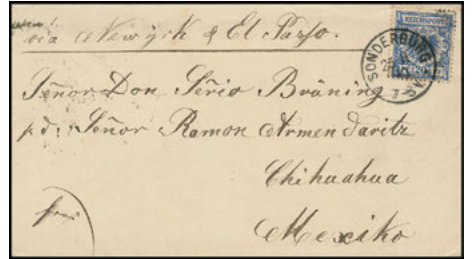 via Newyork & El Paso.
REICHSPOST
SONDERBURG
Señor Don Serio Brüning
pd: Señor Ramon Armendaritz
Chihuahua
frei
Mexiko